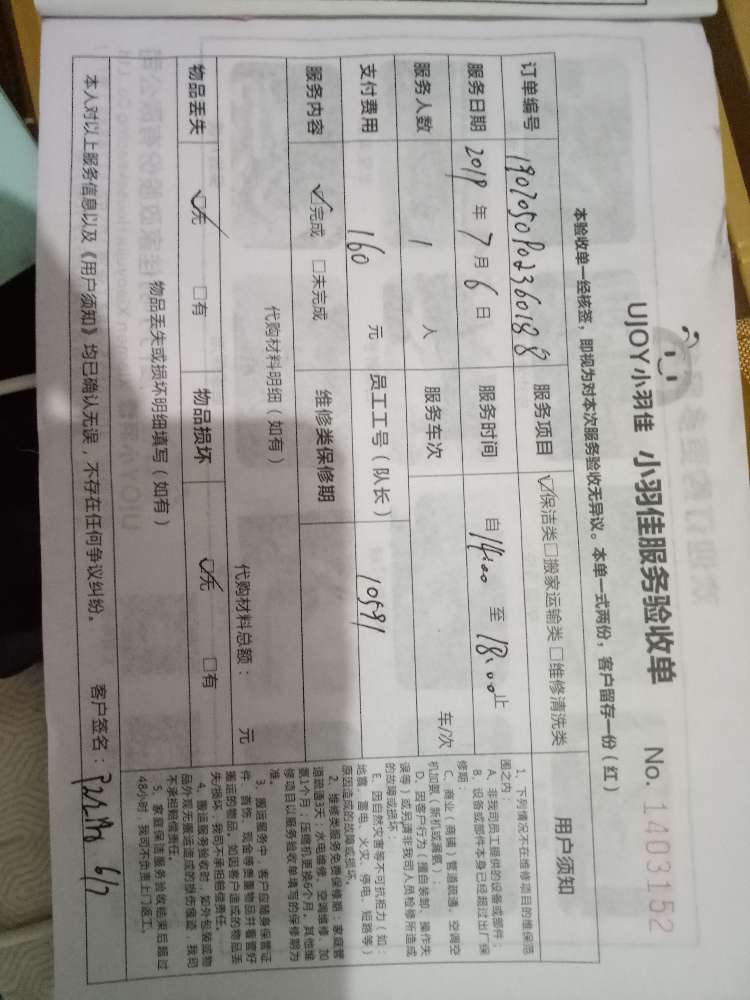 UJOY小羽佳 小羽佳服务验收单 No. 1403152
本验收单一经核签，即视为对本次服务验收无异议。本单一式两份，客户留存一份（红）
订单编号 服务项目 ☑保洁类☐搬家运输类☐维修清洗类
服务日期 2019年7月6日 服务时间 自14:00至18:00止
服务人数 1 人 服务车次 车/次
支付费用 160 元 员工工号（队长） 10591
服务内容 ☑完成 ☐未完成 维修类保修期
代购材料明细（如有） 代购材料总额： 元
物品丢失 ☑无 ☐有 物品损坏 ☑无 ☐有
物品丢失或损坏明细填写（如有）
本人对以上服务信息以及《用户须知》均已确认无误，不存在任何争议纠纷。 客户签名： 6/7
用户须知
1、下列情况不在维修项目的维保范
围之内：
A、非我司员工提供的设备或部件；
B、设备或部件本身已经超过出厂保
修期；
C、商业（商铺）管道疏通，空调空
机加氨（新机或漏氨）；
D、因客户行为（擅自装卸、操作失
误等）或另请非我司人员检修所造成
的故障或损坏；
E、因自然灾害等不可抗拒力（如：
地震、雷电、火灾、停电、短路等）
原因造成的故障或损坏。
2、维修类服务免费保修期：家庭管
道疏通3天；水电维修、空调维修、加
氨1个月；压缩机更换6个月。其他维
修项目以服务验收单填写的保修期为
准。
3、搬运服务中，客户应随身保管证
件、首饰、现金等贵重物品并看管好
搬运的物品，如因客户造成的物品丢
失/损坏，我司不承担赔偿责任。
4、搬运服务验收时，如外包装或物
品外观无搬运造成的损伤痕迹，我司
不承担赔偿责任。
5、家庭保洁服务验收结束后超过
48小时，我司不负责上门返工。